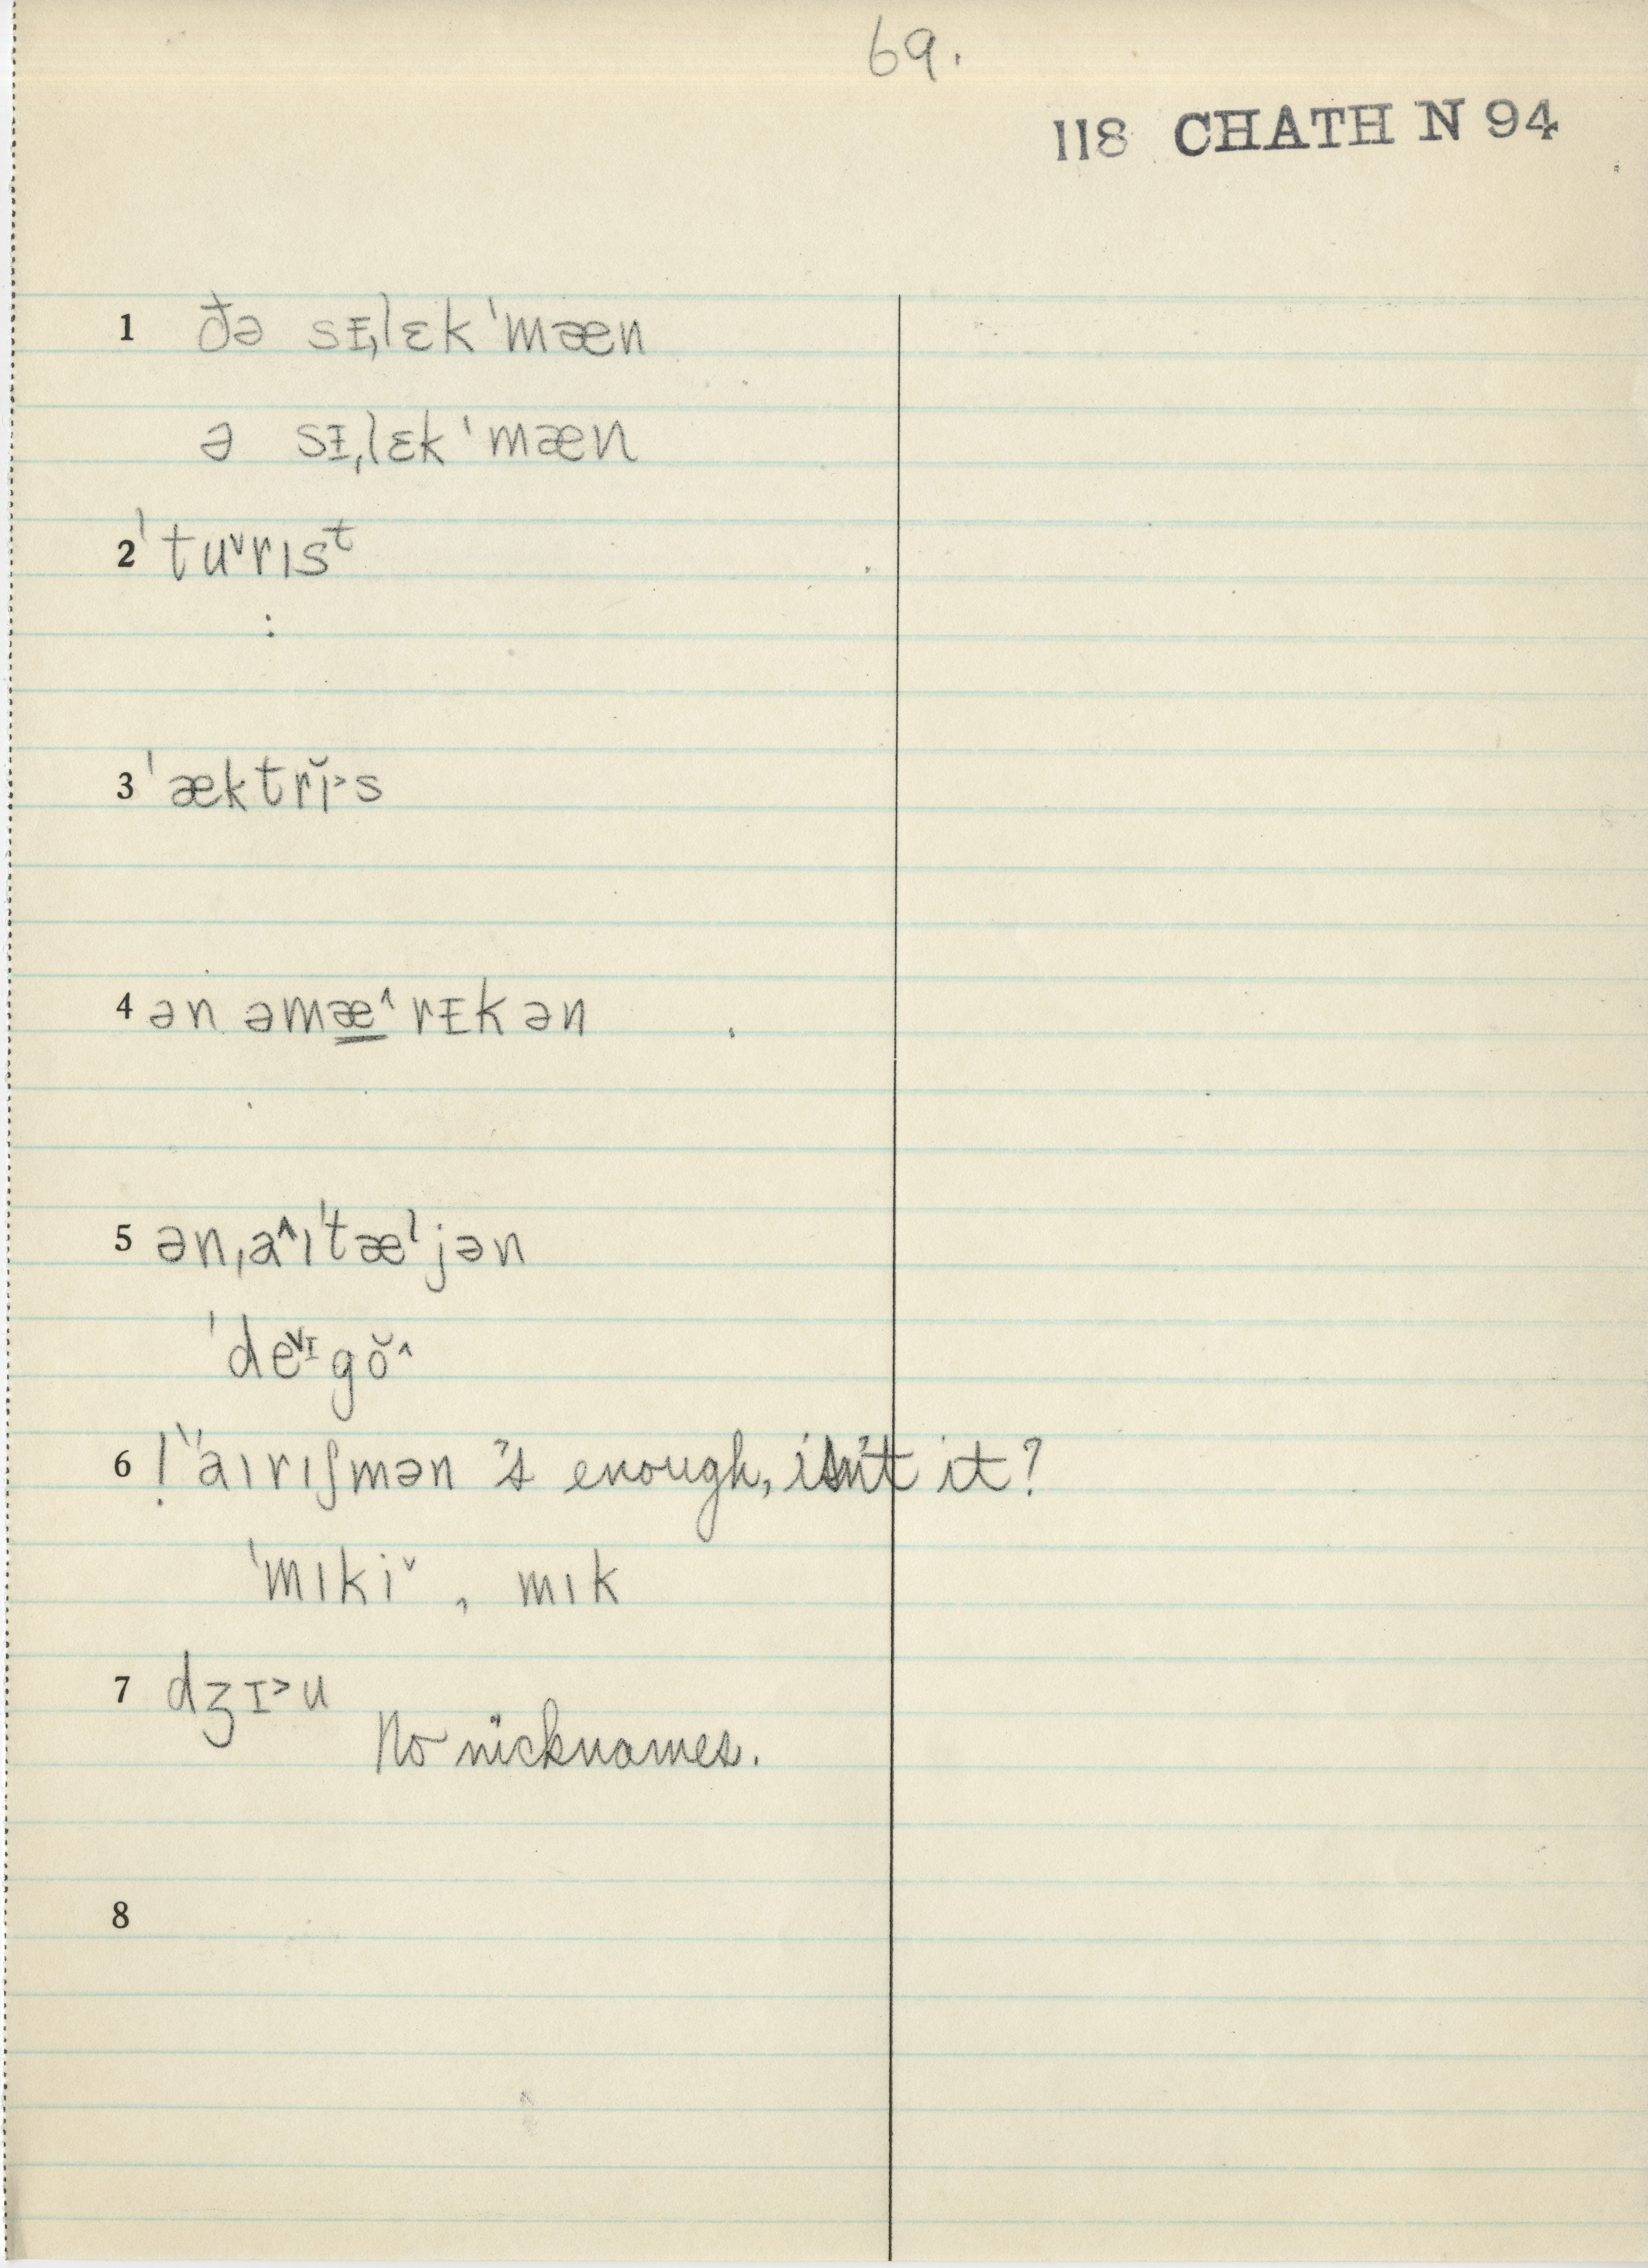 69.
118 CHATH N 94
1 ðə sᵻˌlɛk ˈmæn
ə sᵻˌlɛk ˈmæn
2 ˈtu˅rɪsᵗ
3 ˈæktrɪ̆˃s
4 ən əmæ̳˄rᵻkən
5 ənˌa˄ɪˈtæˡjən
ˈde˅ᶦgŏ˄
6 ! "aɪrɪʃmən "'s enough, isn't it?
ˈmɪki˅ , mɪk
7 dʒɪ˃u
No nicknames.
8